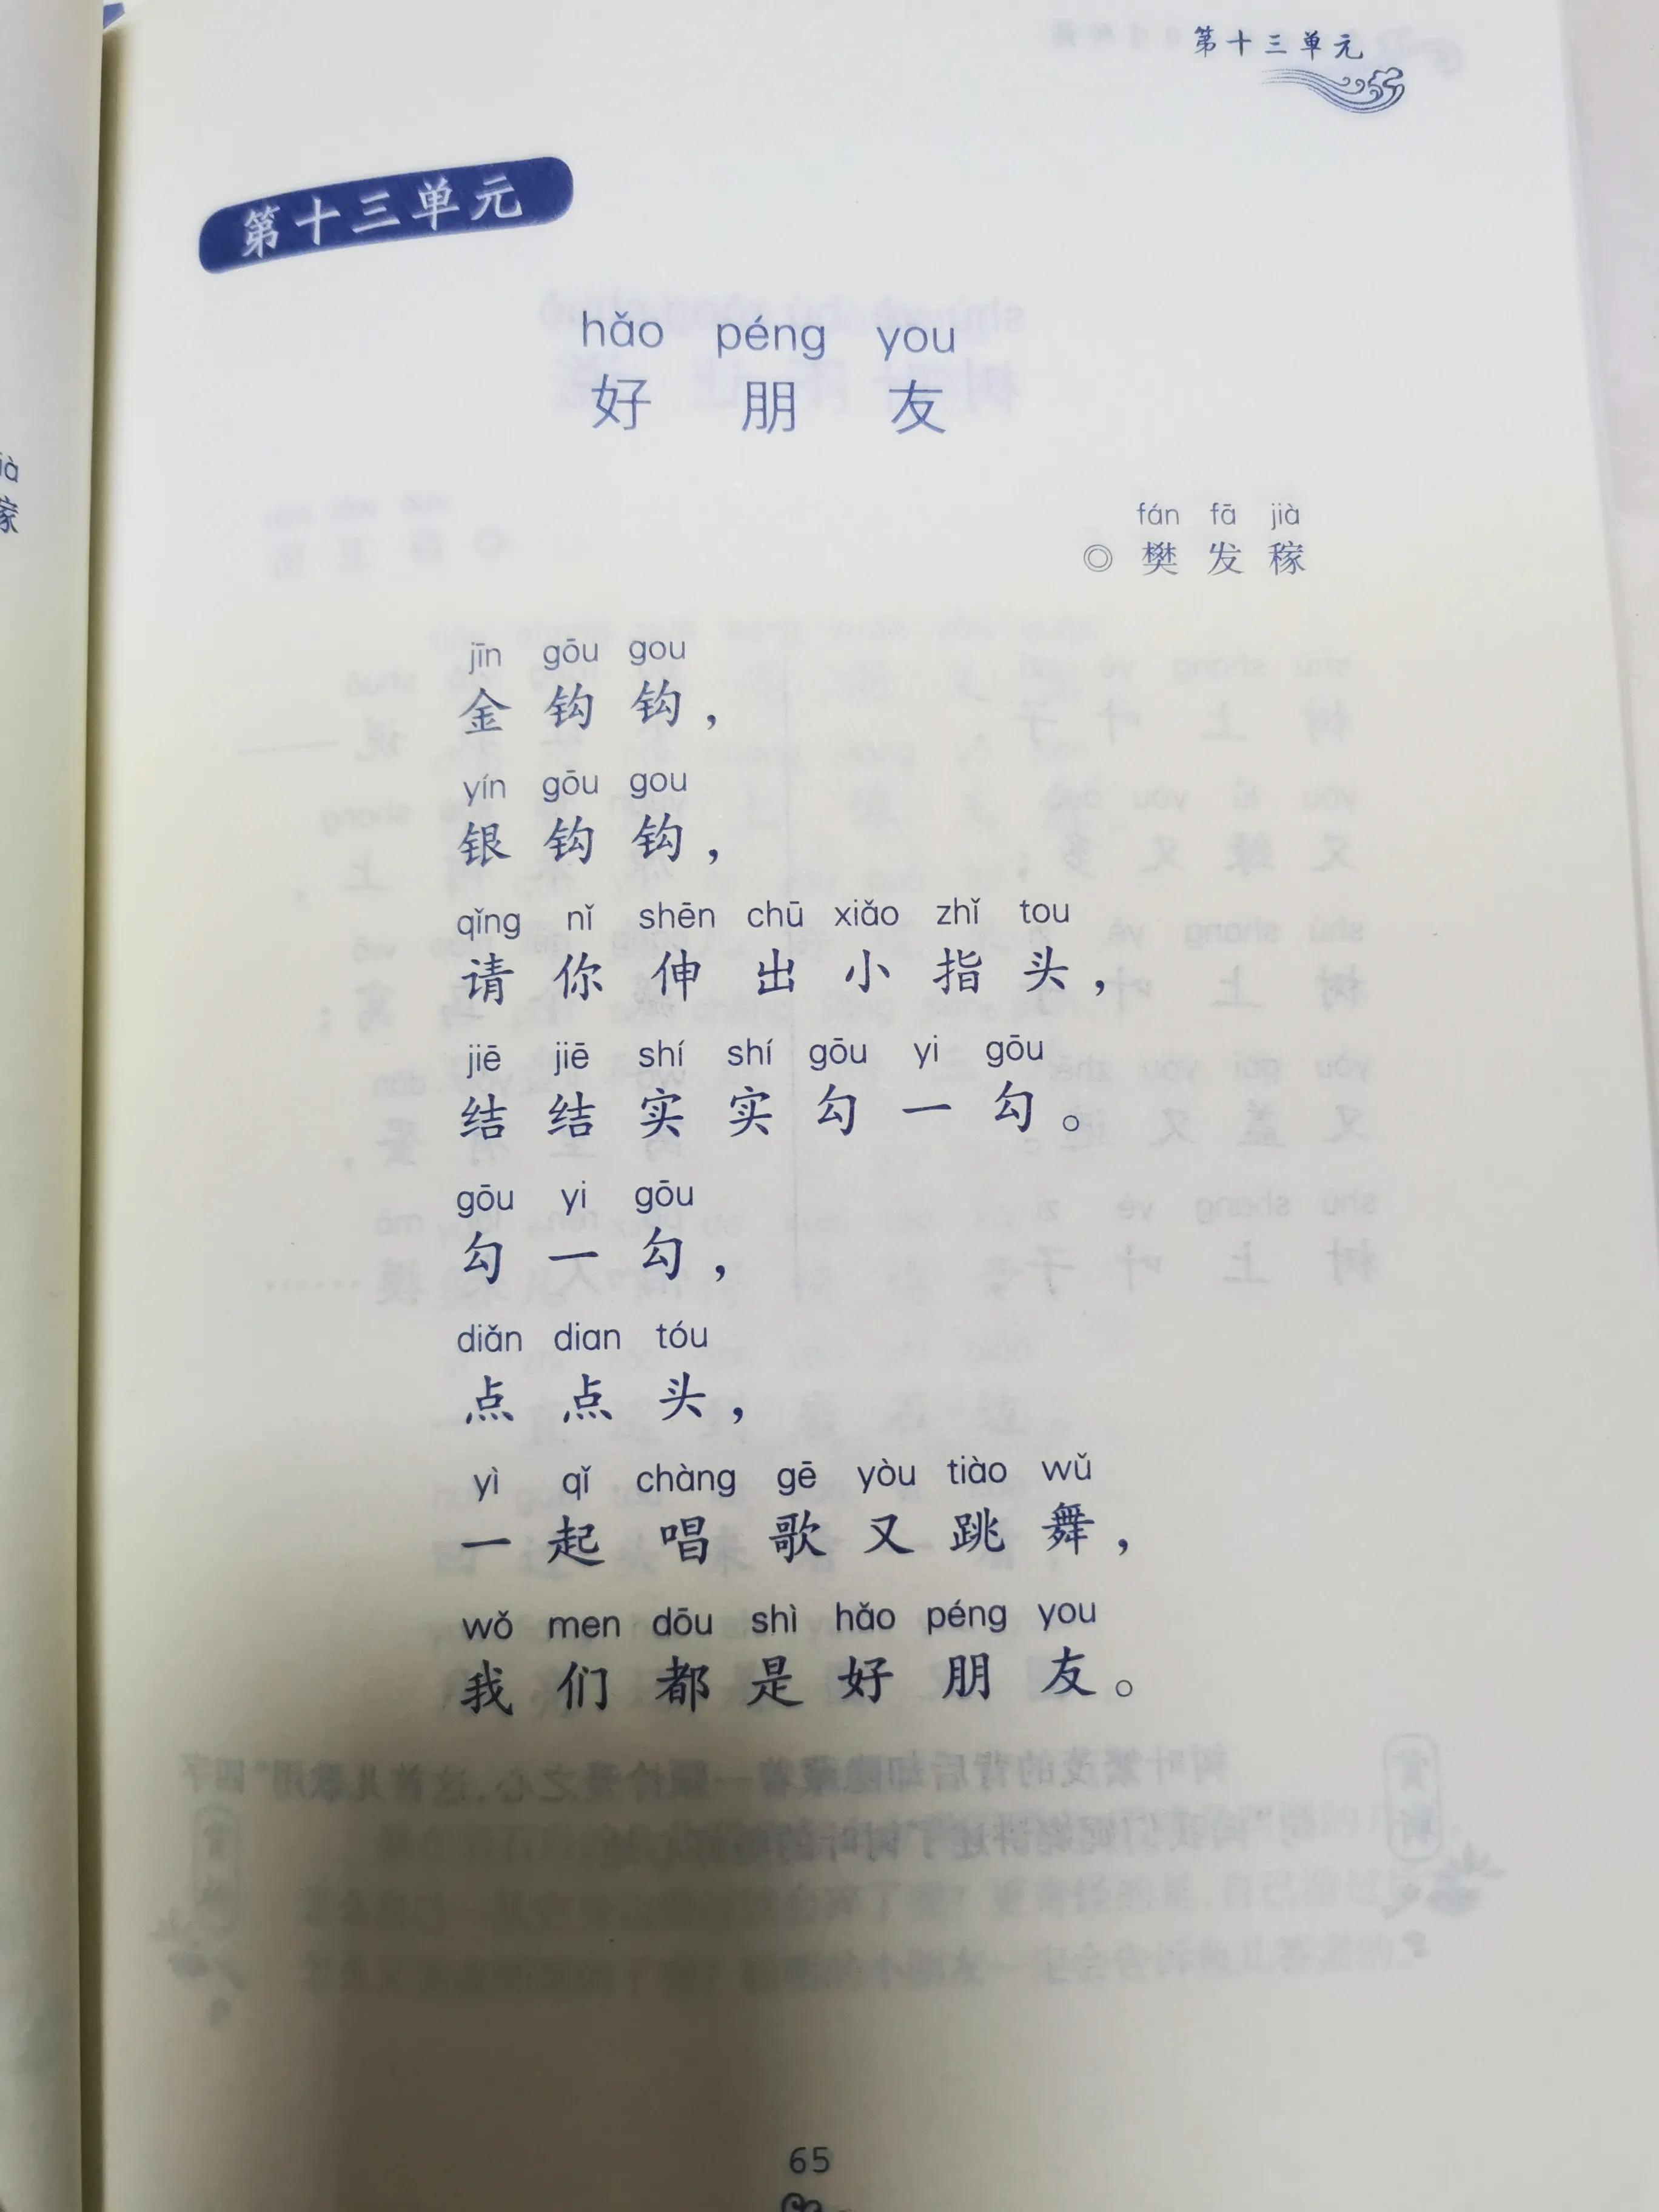 第十三单元
第十三单元
hǎo péng you
好朋友
fán fā jià
◎樊发稼
jīn gōu gou
金钩钩，
yín gōu gou
银钩钩，
qǐng nǐ shēn chū xiǎo zhǐ tou
请你伸出小指头，
jiē jiē shí shí gōu yi gōu
结结实实勾一勾。
gōu yi gōu
勾一勾，
diǎn dian tóu
点点头，
yì qǐ chàng gē yòu tiào wǔ
一起唱歌又跳舞，
wǒ men dōu shì hǎo péng you
我们都是好朋友。
65